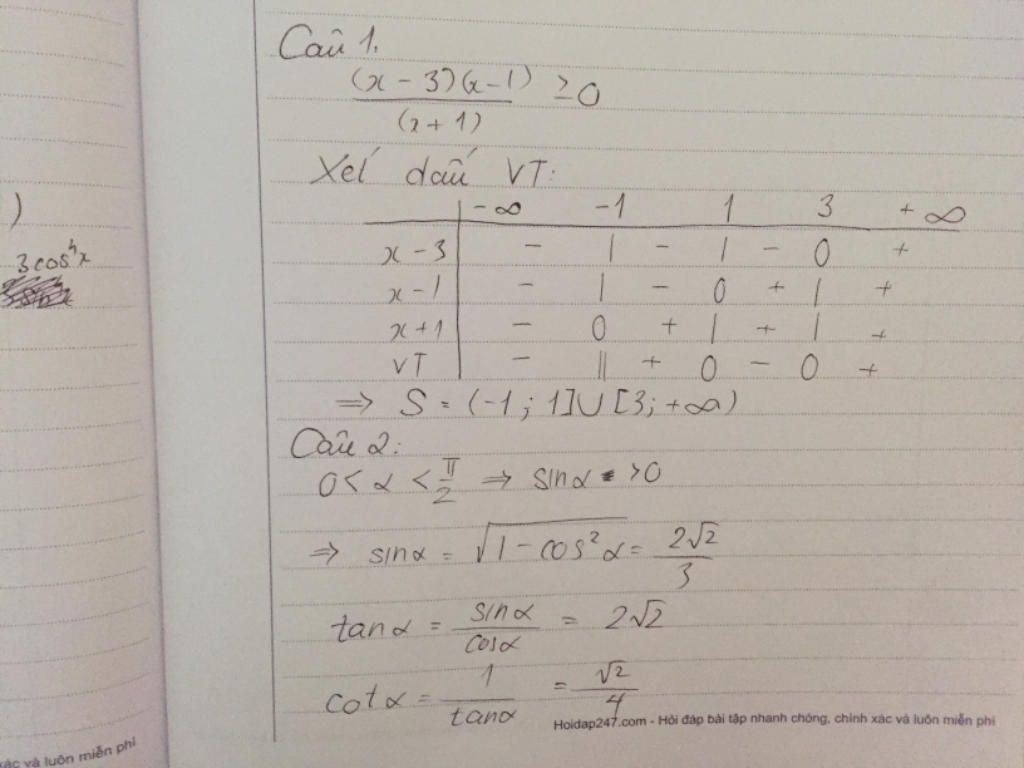 )
3cos⁴x
xác và luôn miễn phí
Câu 1.
(x - 3)(x - 1) / (x + 1) ≥ 0
Xét dấu VT:
-∞ -1 1 3 +∞
x - 3 - | - | - 0 +
x - 1 - | - 0 + | +
x + 1 - 0 + | + | +
VT - || + 0 - 0 +
=> S = (-1; 1] ∪ [3; +∞)
Câu 2:
0 < α < π/2 => sinα > 0
=> sinα = √(1 - cos²α) = 2√2/3
tanα = sinα/cosα = 2√2
cotα = 1/tanα = √2/4
Hoidap247.com - Hỏi đáp bài tập nhanh chóng, chính xác và luôn miễn phí